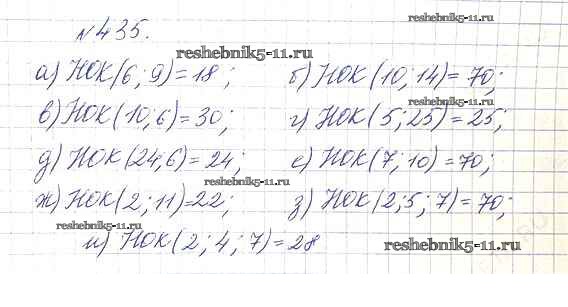 reshebnik5-11.ru
№435.
reshebnik5-11.ru
а) НОК(6; 9)=18; б) НОК(10; 14)=70;
в) НОК(10; 6)=30; г) НОК(5; 25)=25;
д) НОК(24; 6)=24; е) НОК(7; 10)=70;
reshebnik5-11.ru
ж) НОК(2; 11)=22; з) НОК(2; 5; 7)=70;
reshebnik5-11.ru
и) НОК(2; 4; 7)=28
reshebnik5-11.ru